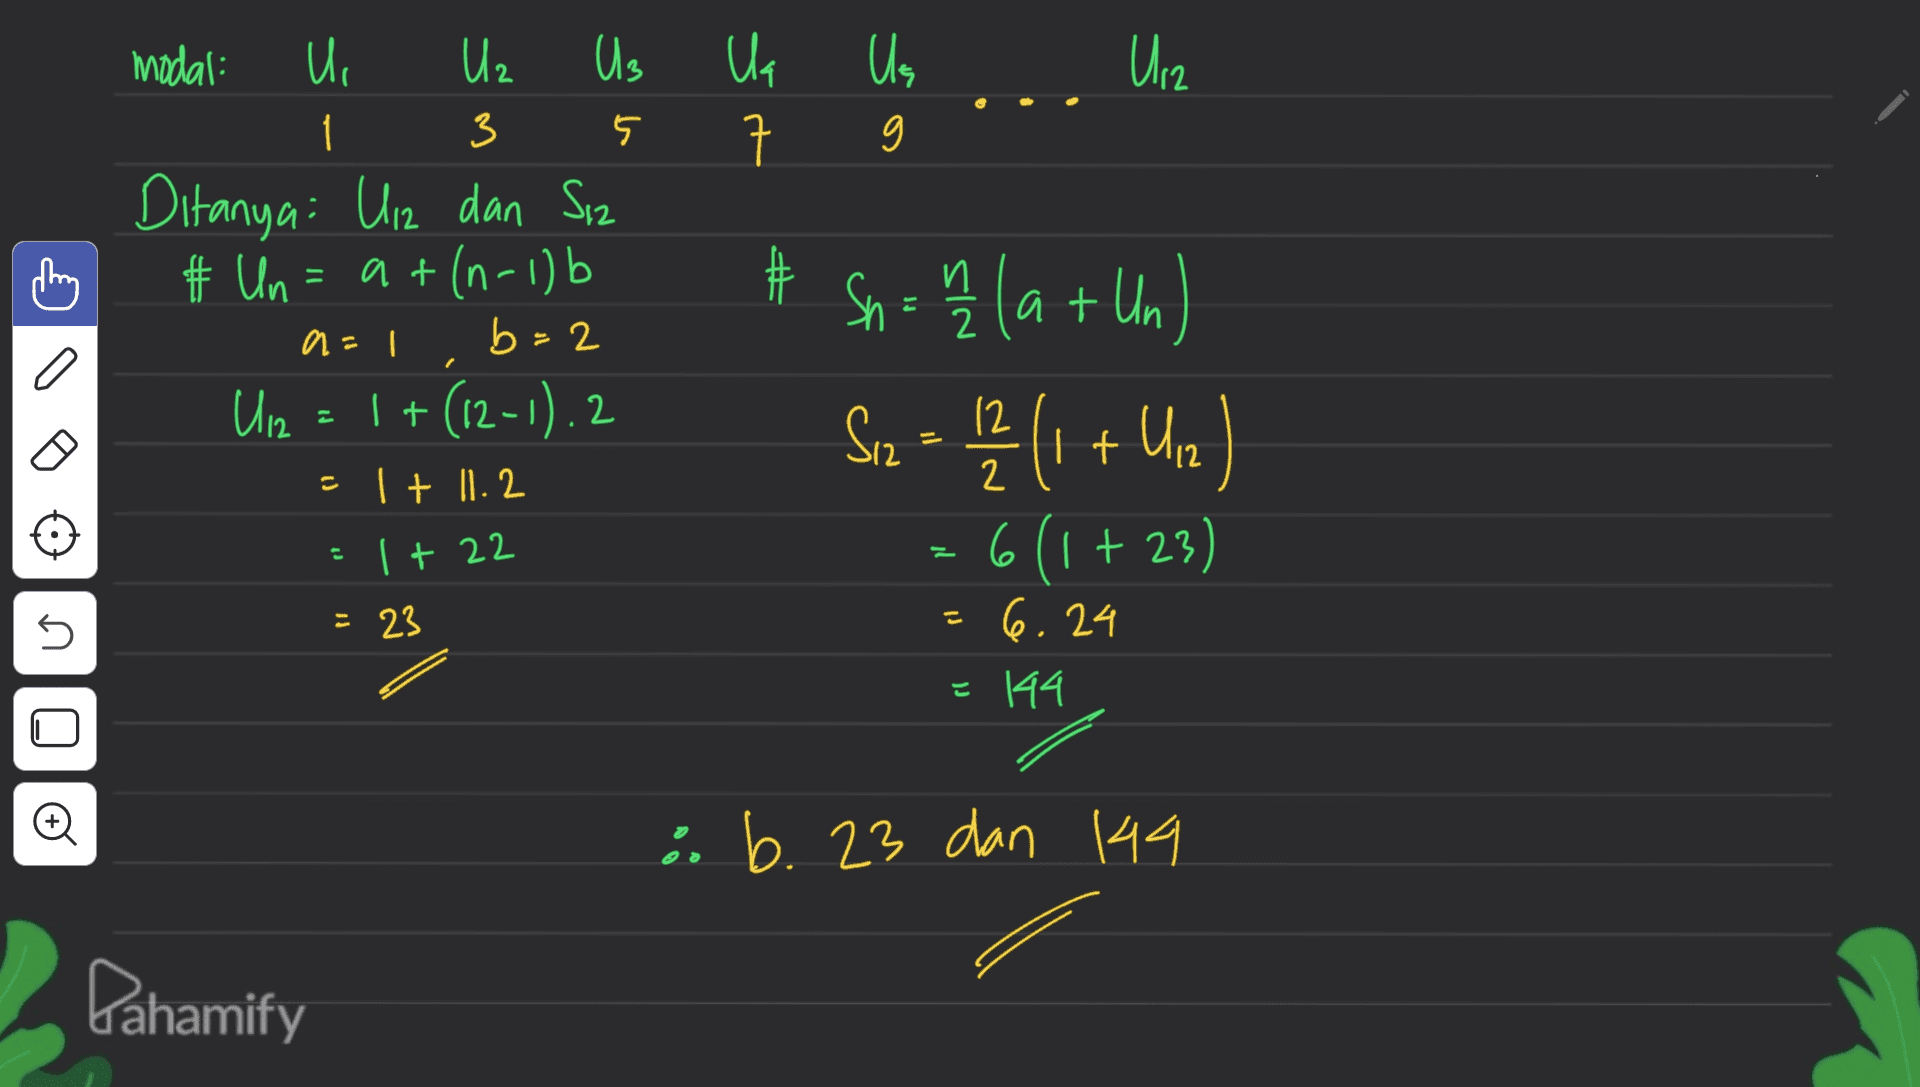 modal: U₁ U₂ U₃ U₄ U₅ ... U₁₂
1 3 5 7 9
Ditanya: U₁₂ dan S₁₂
# Un = a + (n-1)b
a = 1 , b = 2
U₁₂ = 1 + (12-1).2
= 1 + 11.2
= 1 + 22
= 23
# Sn = n/2 (a + Un)
S₁₂ = 12/2 (1 + U₁₂)
= 6 (1 + 23)
= 6. 24
= 144
∴ b. 23 dan 144
Pahamify